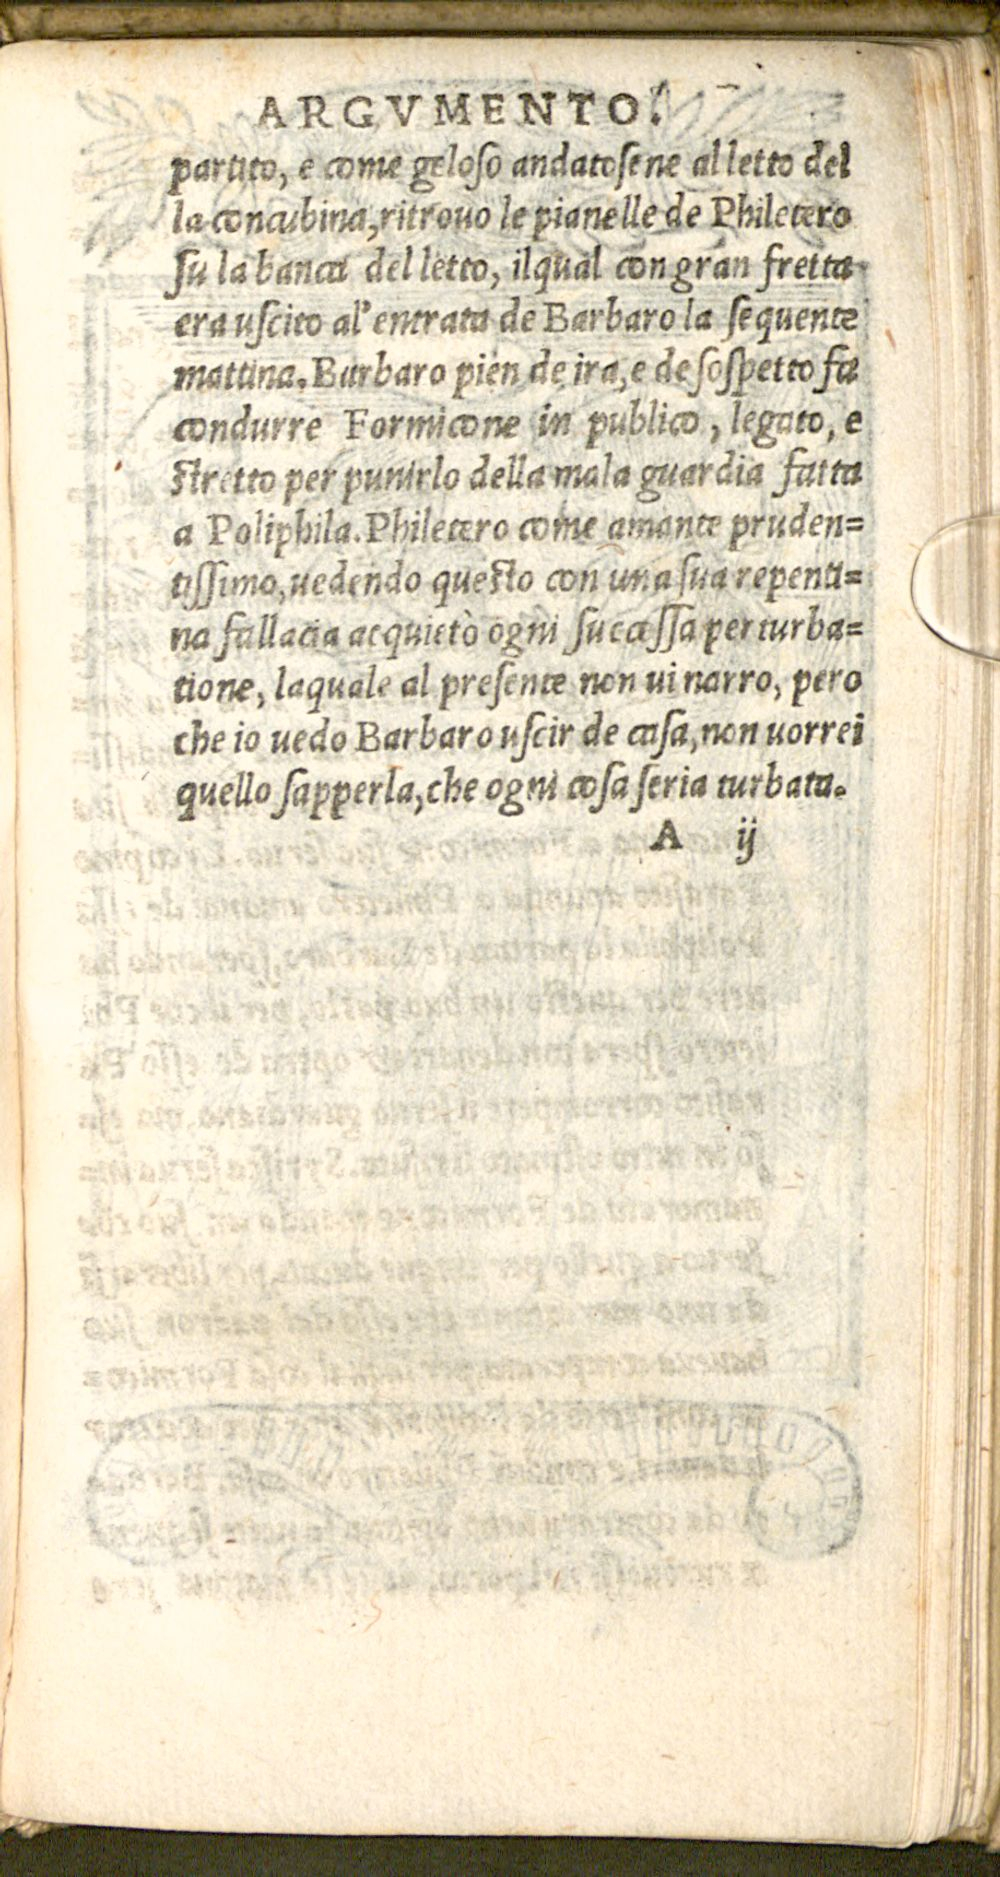 ARGVMENTO.
partito, e come geloso andatosene al letto del
la concubina, ritrouo le pianelle de Philetero
su la banca del letto, ilqual con gran fretta
era uscito al'entrata de Barbaro la sequente
mattina. Barbaro pien de ira, e de sospetto fa
condurre Formicone in publico, legato, e
stretto per punirlo della mala guardia fatta
a Poliphila. Philetero come amante pruden=
tissimo, uedendo questo con una sua repenti=
na fallacia acquietò ogni successa perturba=
tione, laquale al presente non ui narro, pero
che io uedo Barbaro uscir de casa, non uorrei
quello sapperla, che ogni cosa seria turbata.
A ij